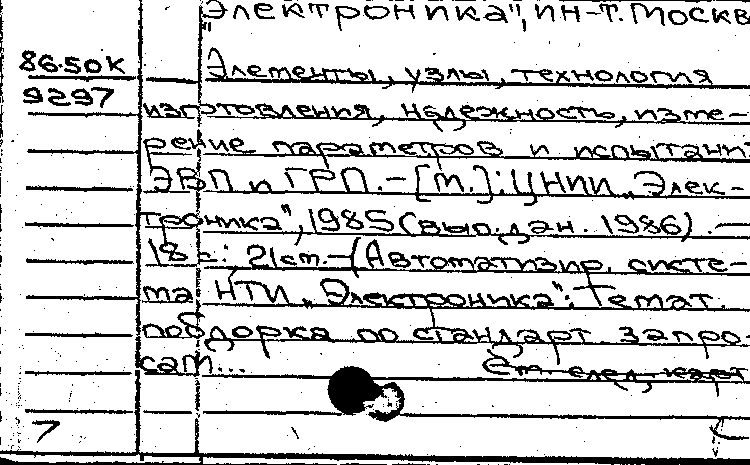 "Электроника", ин-т. Москв
86-50К
Элементы, узлы, технология
9297
изготовления, надежность, изме-
рение параметров и испытани
ЭВП и ГРП. – [М.]: ЦНИИ „Элек-
троника", 1985 (вып. дан. 1986). –
18 с.; 21 см. – (Автоматизир. систе-
ма НТИ „Электроника": Темат.
подборка по стандарт запро-
сам...
См. след. карт
7